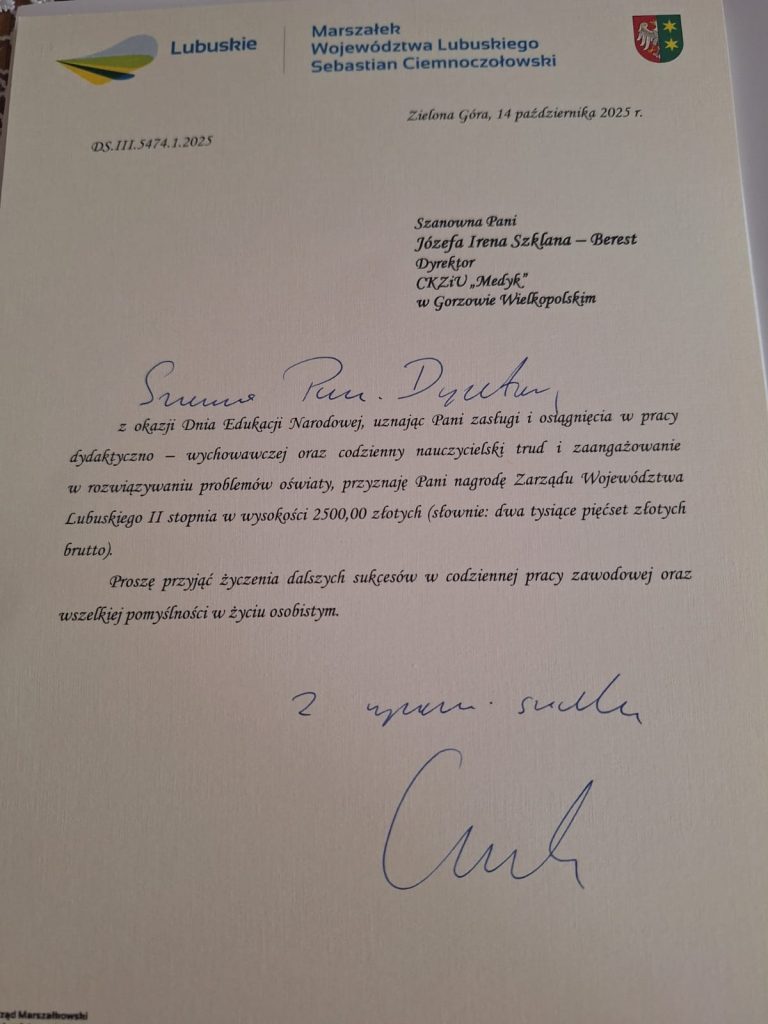 Lubuskie
Marszałek
Województwa Lubuskiego
Sebastian Ciemnoczołowski
Zielona Góra, 14 października 2025 r.
DS.III.5474.1.2025
Szanowna Pani
Józefa Irena Szklana – Berest
Dyrektor
CKZiU „Medyk”
w Gorzowie Wielkopolskim
Szanowna Pani Dyrektor,
z okazji Dnia Edukacji Narodowej, uznając Pani zasługi i osiągnięcia w pracy
dydaktyczno – wychowawczej oraz codzienny nauczycielski trud i zaangażowanie
w rozwiązywaniu problemów oświaty, przyznaję Pani nagrodę Zarządu Województwa
Lubuskiego II stopnia w wysokości 2500,00 złotych (słownie: dwa tysiące pięćset złotych
brutto).
Proszę przyjąć życzenia dalszych sukcesów w codziennej pracy zawodowej oraz
wszelkiej pomyślności w życiu osobistym.
Z
rząd Marszałkowski